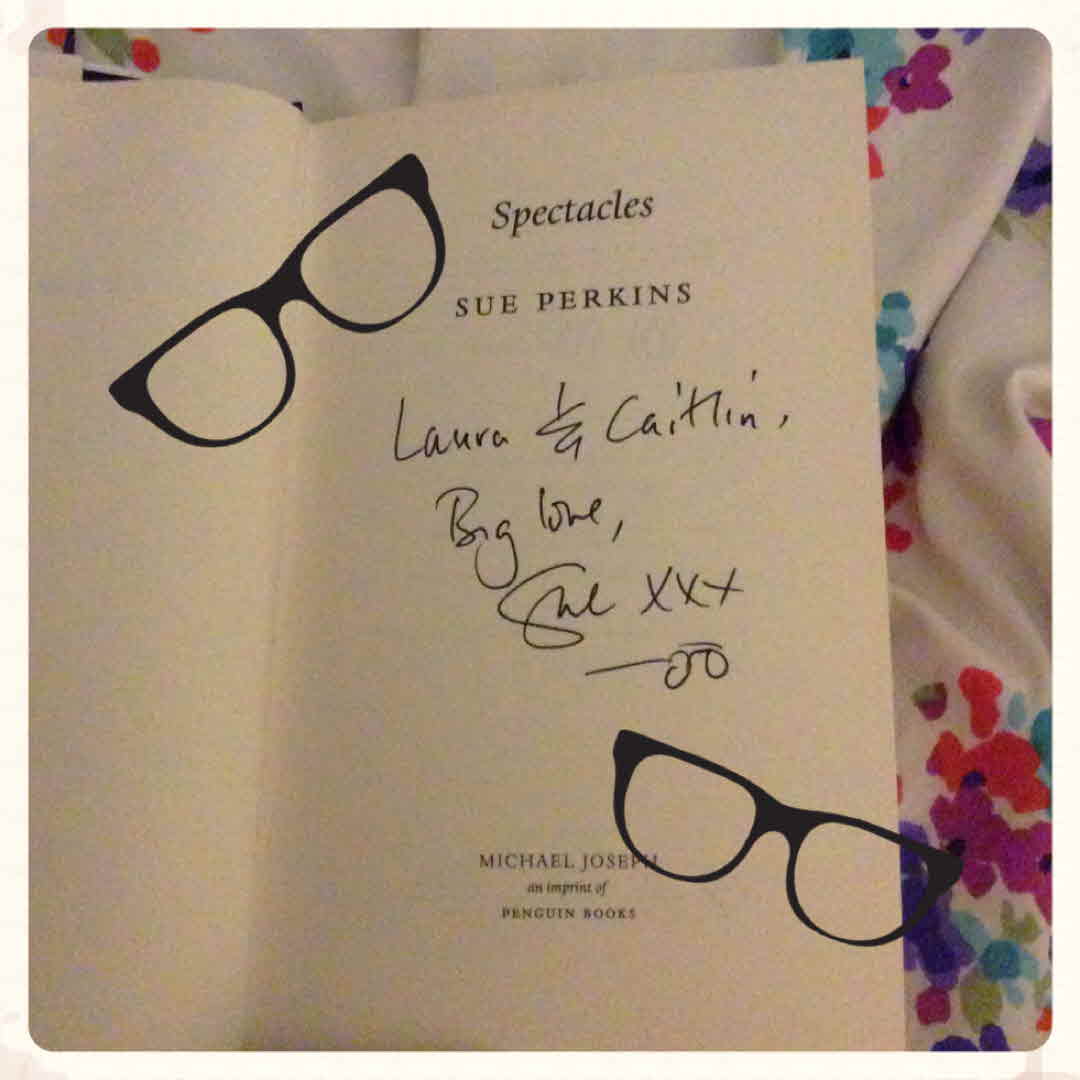 Spectacles
SUE PERKINS
Laura & Caitlin,
Big love,
Sue xxx
MICHAEL JOSEPH
an imprint of
PENGUIN BOOKS